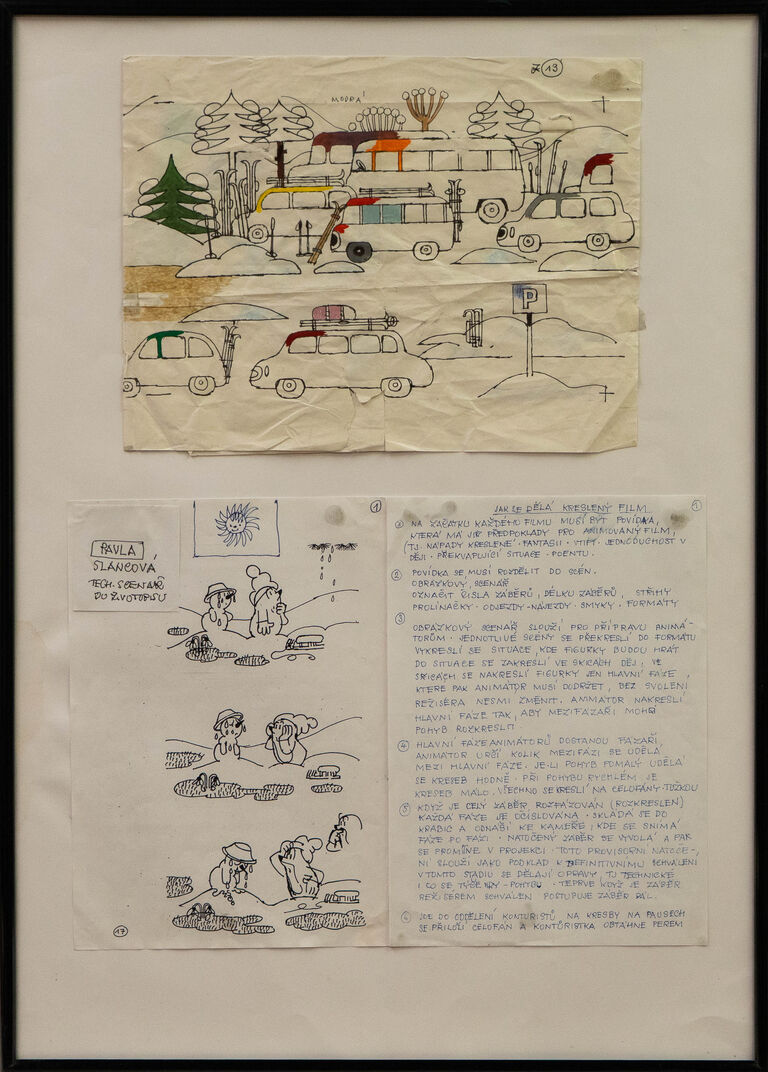 13
MODRÁ
P
PAVLA
SLANCOVÁ
TECH. SCENÁŘ
DO ŽIVOTOPISU
1
17
1
JAK SE DĚLÁ KRESLENÝ FILM
NA ZAČÁTKU KAŽDÉHO FILMU MUSÍ BÝT POVÍDKA,
KTERÁ MÁ JISÉ PŘEDPOKLADY PRO ANIMOVANÝ FILM,
(TJ. NÁPADY KRESLENÉ · FANTASII · VTIP · JEDNODUCHOST V
DĚJI · PŘEKVAPUJÍCÍ SITUACE · POENTU.
2 POVÍDKA SE MUSÍ ROZDĚLIT DO SCÉN.
OBRÁZKOVÝ SCENÁŘ
OZNAČIT ČÍSLA ZÁBĚRŮ, DÉLKU ZÁBĚRŮ, STŘIHY
PROLÍNAČKY · ODJEZDY-NÁJEZDY · SMYKY · FORMÁTY
3 OBRÁZKOVÝ SCENÁŘ SLOUŽÍ PRO PŘÍPRAVU ANIMÁ-
TORŮM · JEDNOTLIVÉ SCÉNY SE PŘEKRESLÍ DO FORMÁTU
VYKRESLÍ SE SITUACE, KDE FIGURKY BUDOU HRÁT
DO SITUACE SE ZAKRESLÍ VE SKICÁCH DĚJ, VE
SKICÁCH SE NAKRESLÍ FIGURKY JEN HLAVNÍ FÁZE,
KTERÉ PAK ANIMÁTOR MUSÍ DODRŽET, BEZ SVOLENÍ
REŽISÉRA NESMÍ ZMĚNIT. ANIMÁTOR NAKRESLÍ
HLAVNÍ FÁZE TAK, ABY MEZIFÁZAŘI MOHLI
POHYB ROZKRESLIT
4 HLAVNÍ FÁZE ANIMÁTORŮ DOSTANOU FÁZAŘI,
ANIMÁTOR URČÍ KOLIK MEZIFÁZÍ SE UDĚLÁ
MEZI HLAVNÍ FÁZE. JE-LI POHYB POMALÝ UDĚLÁ
SE KRESEB HODNĚ · PŘI POHYBU RYCHLÉM JE
KRESEB MÁLO. VŠECHNO SE KRESLÍ NA CELOFÁNY TUŽKOU
5 KDYŽ JE CELÝ ZÁBĚR ROZFÁZOVÁN (ROZKRESLEN)
KAŽDÁ FÁZE JE OČÍSLOVÁNA · SKLÁDÁ SE DO
KRABIC A ODNÁŠÍ KE KAMEŘE, KDE SE SNÍMÁ
FÁZE PO FÁZI · NATOČENÝ ZÁBĚR SE VYVOLÁ A PAK
SE PROMÍTNE V PROJEKCI · TOTO PROVISORNÍ NATOČE-
NÍ SLOUŽÍ JAKO PODKLAD K DEFINITIVNÍMU SCHVÁLENÍ
V TOMTO STADIU SE DĚLAJÍ OPRAVY, TJ TECHNICKÉ
I CO SE TÝČE HRY - POHYBU · TEPRVE KDYŽ JE ZÁBĚR
REŽISÉREM SCHVÁLEN POSTUPUJE ZÁBĚR DÁL.
JDE DO ODDĚLENÍ KONTURISTŮ NA KRESBY NA PAUSÁCH
SE PŘILOŽÍ CELOFÁN A KONTURISTKA OBTÁHNE PEREM